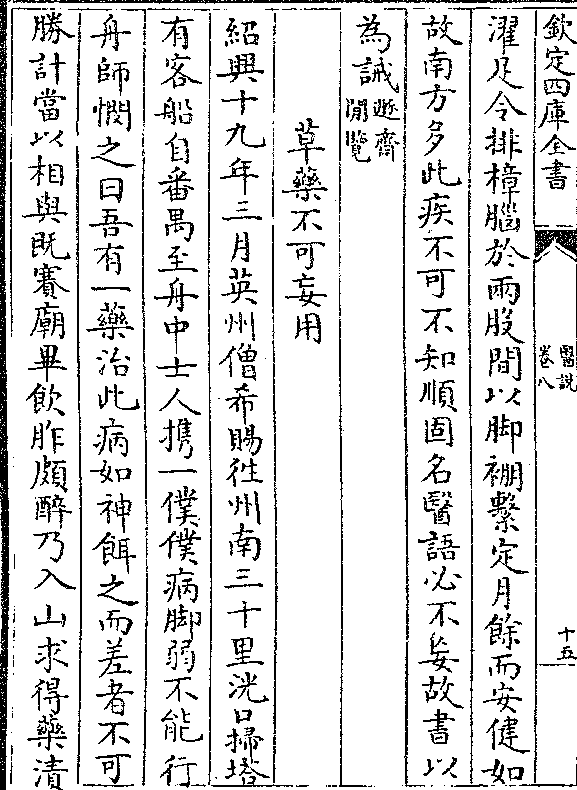 欽定四庫全書
醫說
卷八
十五
濯足令排樟腦於兩股間以脚繃繫定月餘而安健如
故南方多此疾不可不知順固名醫語必不妄故書以
為誡遯齋閒覽
草藥不可妄用
紹興十九年三月英州僧希賜往州南三十里洸口掃塔
有客船自番禺至舟中士人擕一僕僕病脚弱不能行
舟師憫之曰吾有一藥治此病如神餌之而差者不可
勝計當以相與既賽廟畢飲胙頗醉乃入山求得藥漬